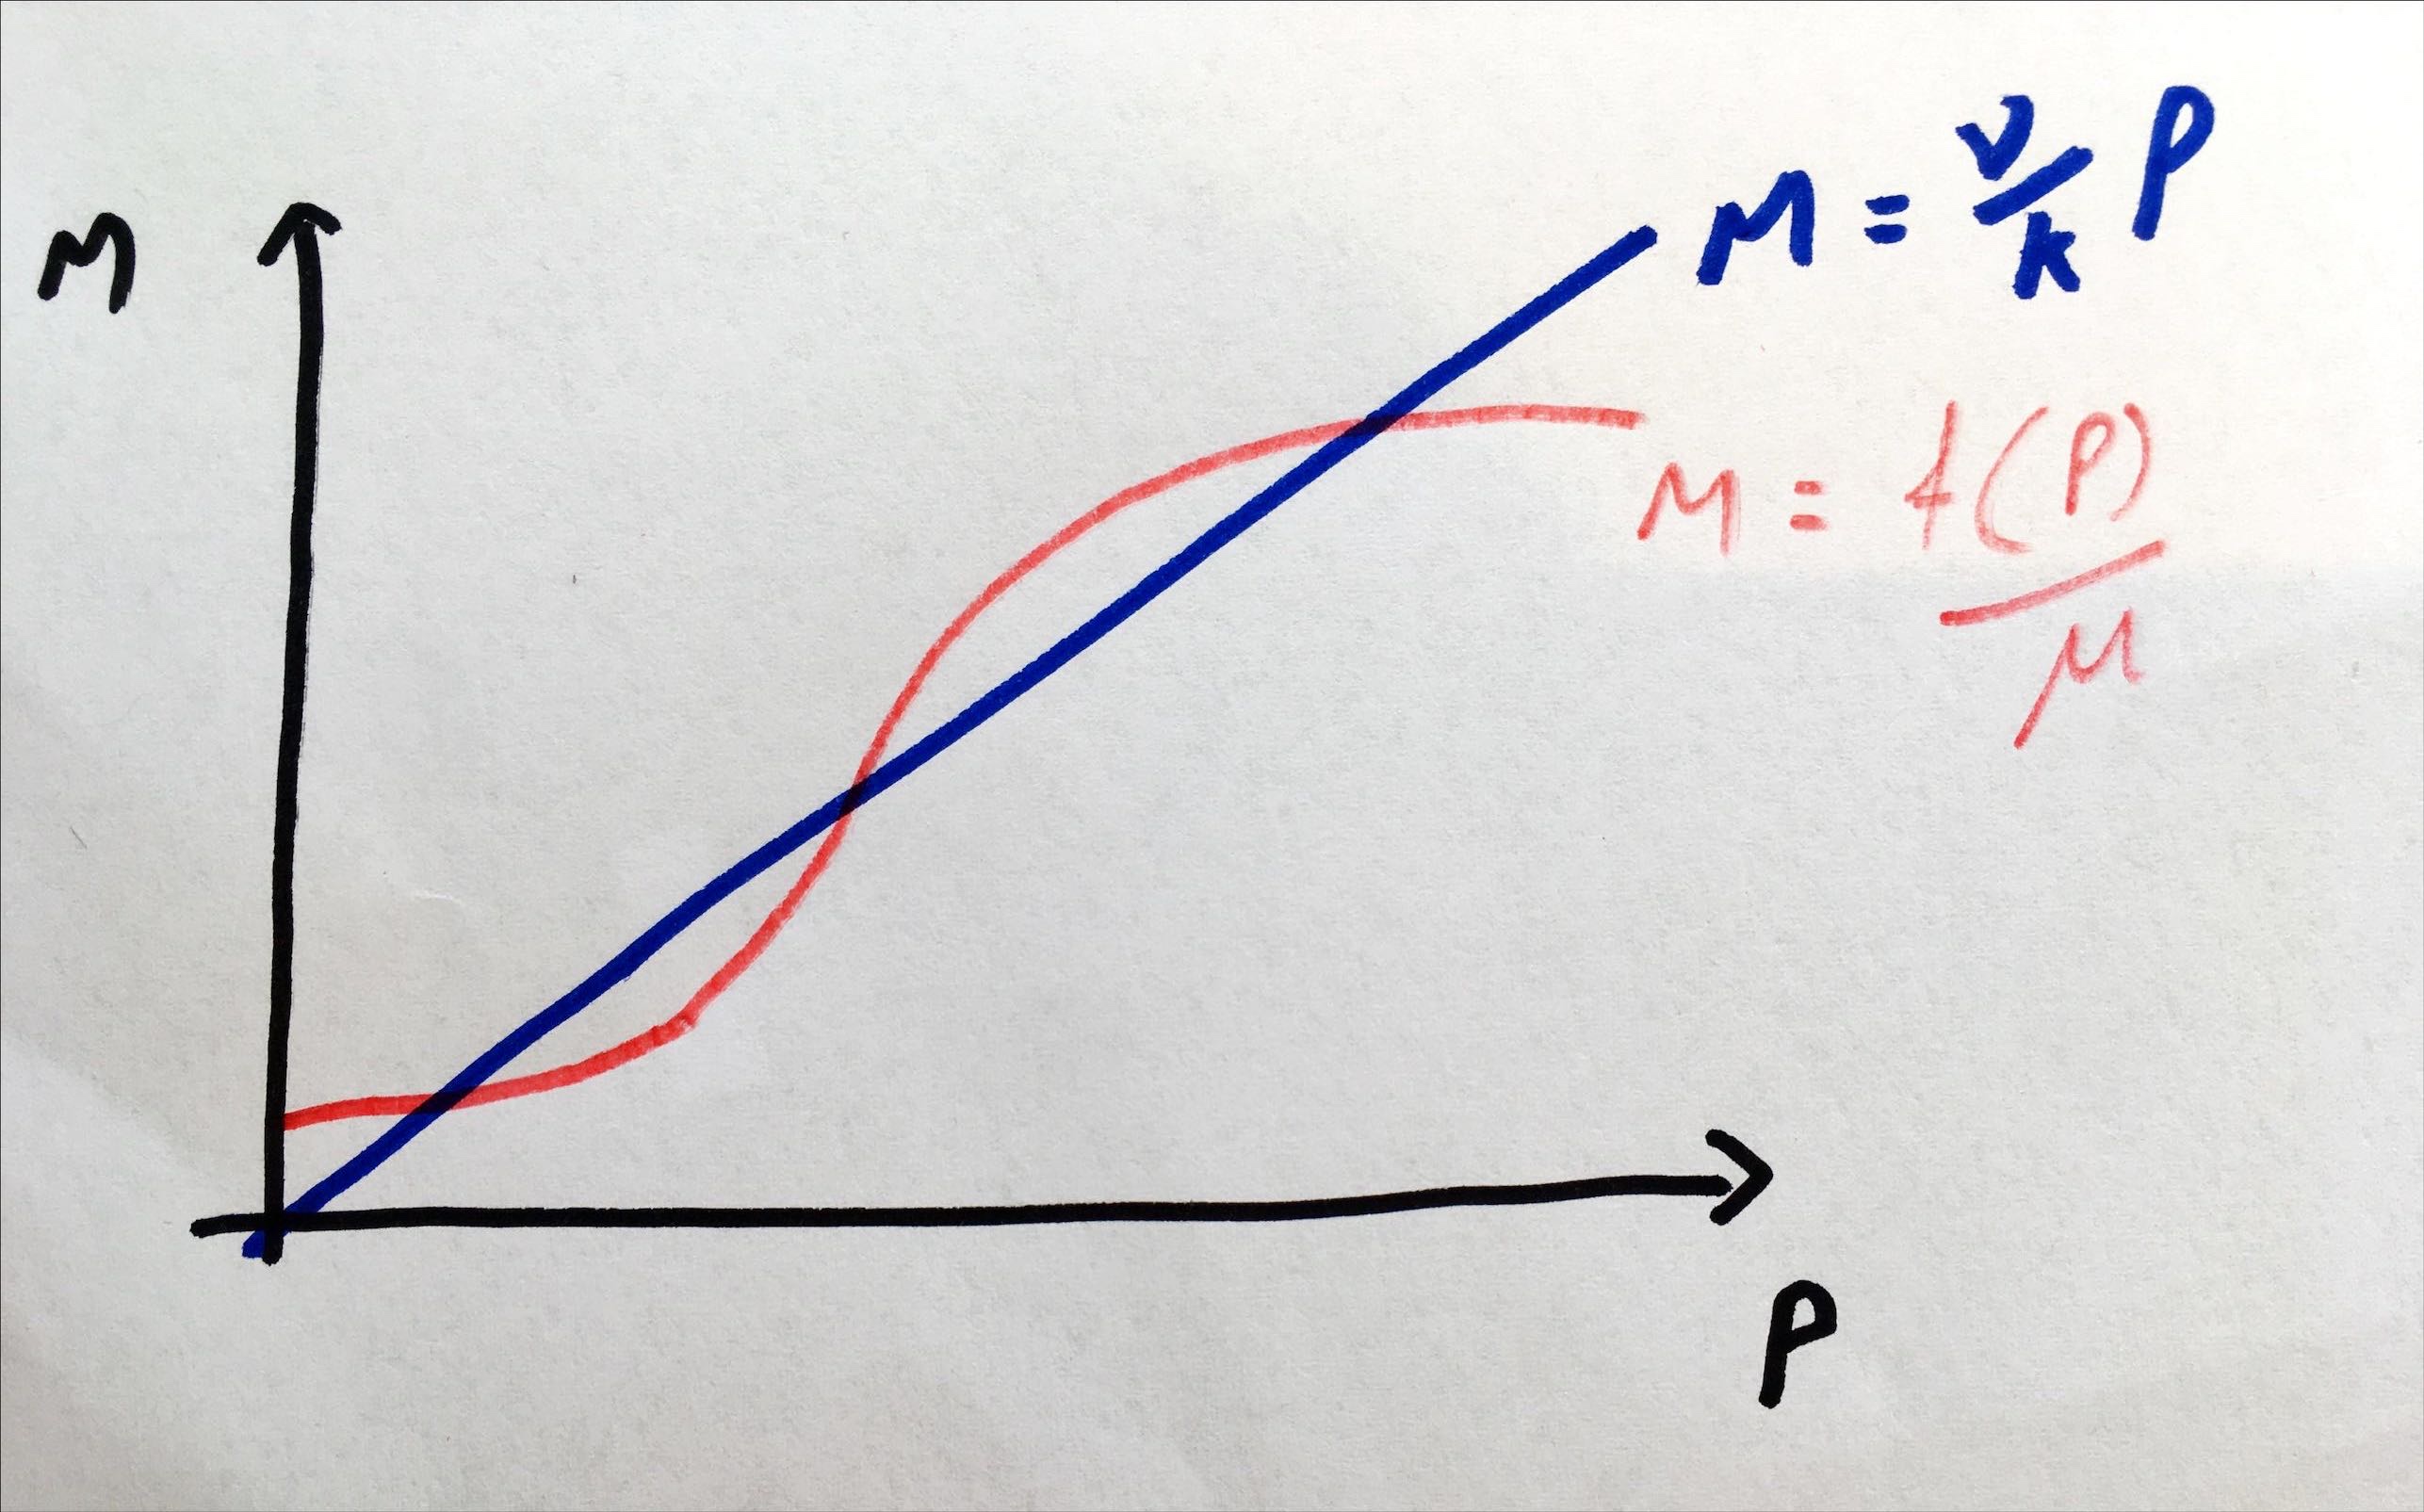 M
M = ν/k P
M = f(P)/μ
P